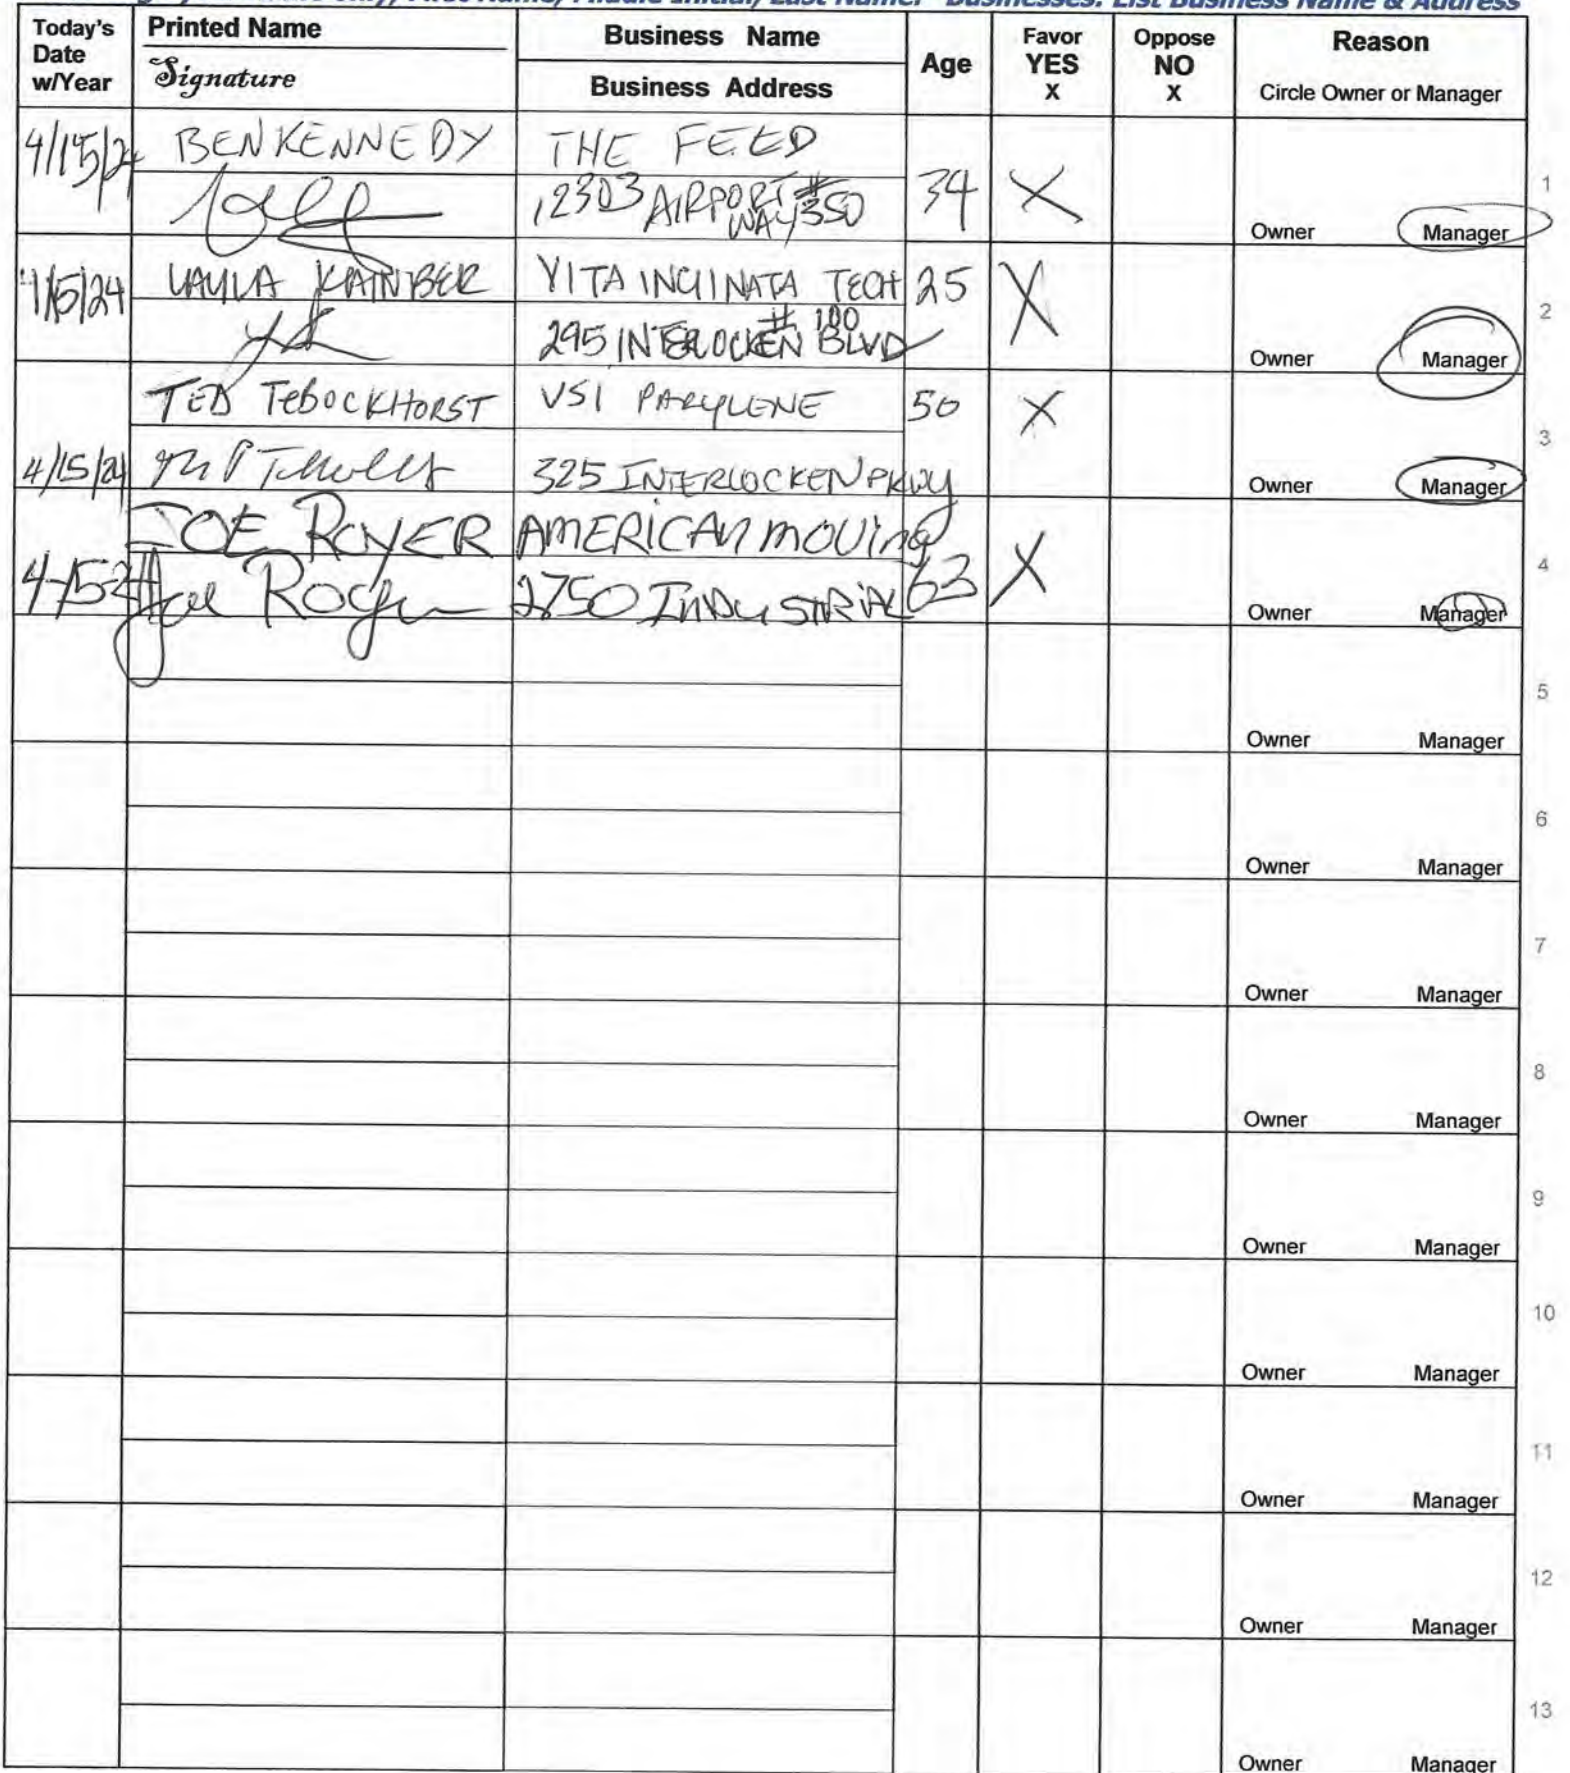 First Name, Middle Initial, Last Name. Businesses: List Business Name & Address
Today's Date w/Year
Printed Name
Signature
Business Name
Business Address
Age
Favor YES X
Oppose NO X
Reason
Circle Owner or Manager
4/15/24 BEN KENNEDY THE FEED
12303 AIRPORT WAY #350 34 X
Owner Manager 1
4/15/24 VITA INCLINATA TECH 25 X
295 INTERLOCKEN BLVD #100
Owner Manager 2
TED TeBOCKHORST VSI PARYLENE 50 X
4/15/24 325 INTERLOCKEN PKWY
Owner Manager 3
JOE ROYER AMERICAN MOVING
4-15-24 Joe Royer 2750 INDUSTRIAL 63 X
Owner Manager 4
5
Owner Manager
6
Owner Manager
7
Owner Manager
8
Owner Manager
9
Owner Manager
10
Owner Manager
11
Owner Manager
12
Owner Manager
13
Owner Manager